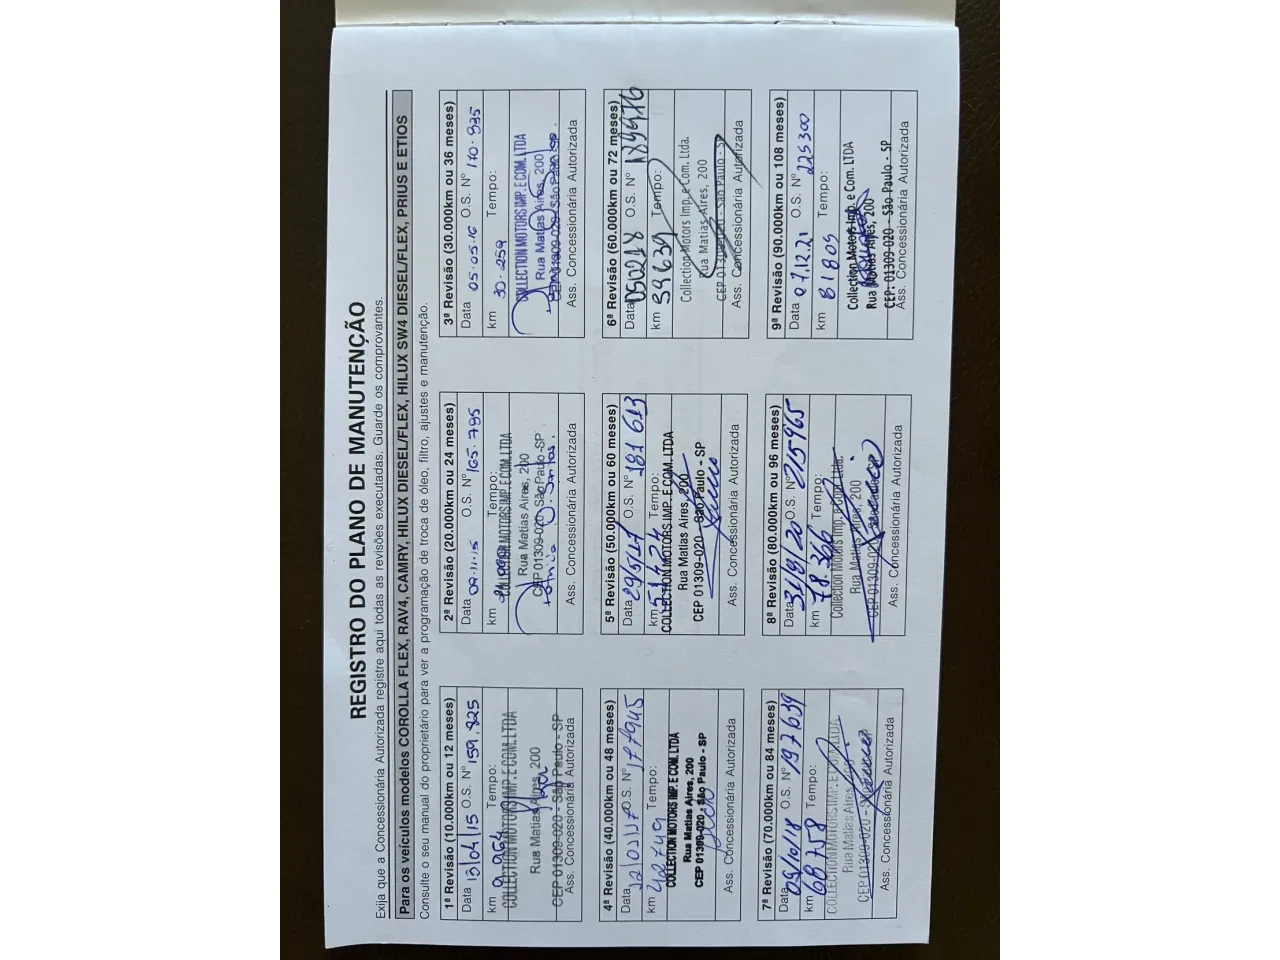 REGISTRO DO PLANO DE MANUTENÇÃO
Exija que a Concessionária Autorizada registre aqui todas as revisões executadas. Guarde os comprovantes.
Para os veículos modelos COROLLA FLEX, RAV4, CAMRY, HILUX DIESEL/FLEX, HILUX SW4 DIESEL/FLEX, PRIUS E ETIOS
Consulte o seu manual do proprietário para ver a programação de troca de óleo, filtro, ajustes e manutenção.
1ª Revisão (10.000km ou 12 meses)
Data 13/04/15 O.S. Nº 159.825
km Tempo:
COLLECTION MOTORS IMP. E COM. LTDA
Rua Matias Aires, 200
CEP 01309-020 - São Paulo - SP
Ass. Concessionária Autorizada
2ª Revisão (20.000km ou 24 meses)
Data 09.11.15 O.S. Nº 165.795
km Tempo:
COLLECTION MOTORS IMP. E COM. LTDA
Rua Matias Aires, 200
CEP 01309-020 - São Paulo - SP
Ass. Concessionária Autorizada
3ª Revisão (30.000km ou 36 meses)
Data 05.05.16 O.S. Nº 170.935
km 30.259 Tempo:
COLLECTION MOTORS IMP. E COM. LTDA
Rua Matias Aires, 200
CEP 01309-020 - São Paulo - SP
Ass. Concessionária Autorizada
4ª Revisão (40.000km ou 48 meses)
Data 12/01/17 O.S. Nº 177945
km 42749 Tempo:
COLLECTION MOTORS IMP. E COM. LTDA
Rua Matias Aires, 200
CEP 01309-020 - São Paulo - SP
Ass. Concessionária Autorizada
5ª Revisão (50.000km ou 60 meses)
Data 29/5/17 O.S. Nº 181613
km 51424 Tempo:
COLLECTION MOTORS IMP. E COM. LTDA
Rua Matias Aires, 200
CEP 01309-020 - São Paulo - SP
Ass. Concessionária Autorizada
6ª Revisão (60.000km ou 72 meses)
Data 050218 O.S. Nº
km 59639 Tempo:
Collection Motors Imp. e Com. Ltda.
Rua Matias Aires, 200
CEP 01309-020 - São Paulo - SP
Ass. Concessionária Autorizada
7ª Revisão (70.000km ou 84 meses)
Data 09/10/18 O.S. Nº 197639
km 68758 Tempo:
COLLECTION MOTORS IMP. E COM. LTDA
Rua Matias Aires, 200
CEP 01309-020 - São Paulo - SP
Ass. Concessionária Autorizada
8ª Revisão (80.000km ou 96 meses)
Data 31/9/20 O.S. Nº 215965
km 78.366 Tempo:
Collection Motors Imp. e Com. Ltda.
Rua Matias Aires, 200
CEP 01309-020
Ass. Concessionária Autorizada
9ª Revisão (90.000km ou 108 meses)
Data 07.12.21 O.S. Nº 225300
km 81809 Tempo:
Collection Motors Imp. e Com. LTDA
Rua Matias Aires, 200
CEP: 01309-020 - São Paulo - SP
Ass. Concessionária Autorizada